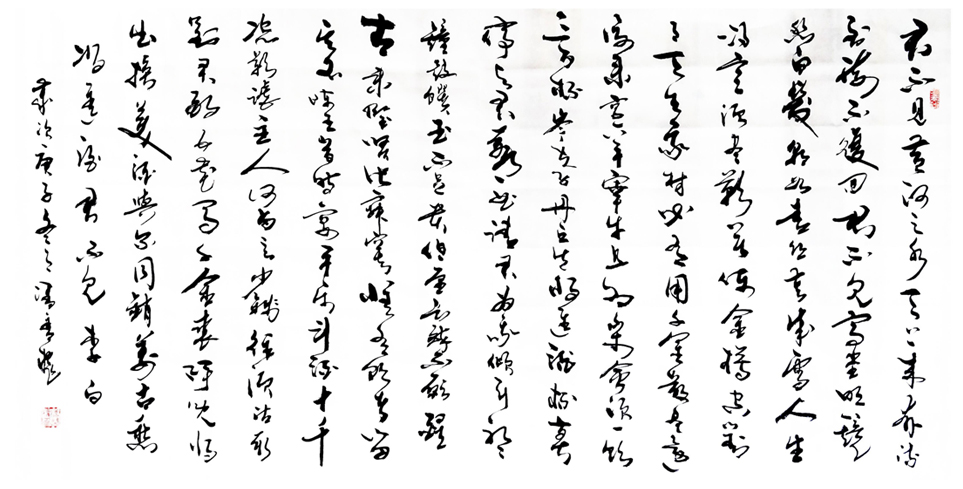 君不見黃河之水天上來奔流
到海不復回君不見高堂明鏡
悲白髮朝如青絲暮成雪人生
得意須盡歡莫使金樽空對
月天生我材必有用千金散盡還
復來烹羊宰牛且為樂會須一飲
三百杯岑夫子丹丘生將進酒杯莫
停與君歌一曲請君為我傾耳聽
鐘鼓饌玉不足貴但願長醉不願醒
古來聖賢皆寂寞惟有飲者留
其名陳王昔時宴平樂斗酒十千
恣歡謔主人何為言少錢徑須沽取
對君酌五花馬千金裘呼兒將
出換美酒與爾同銷萬古愁
將進酒君不見李白
歲次庚子冬